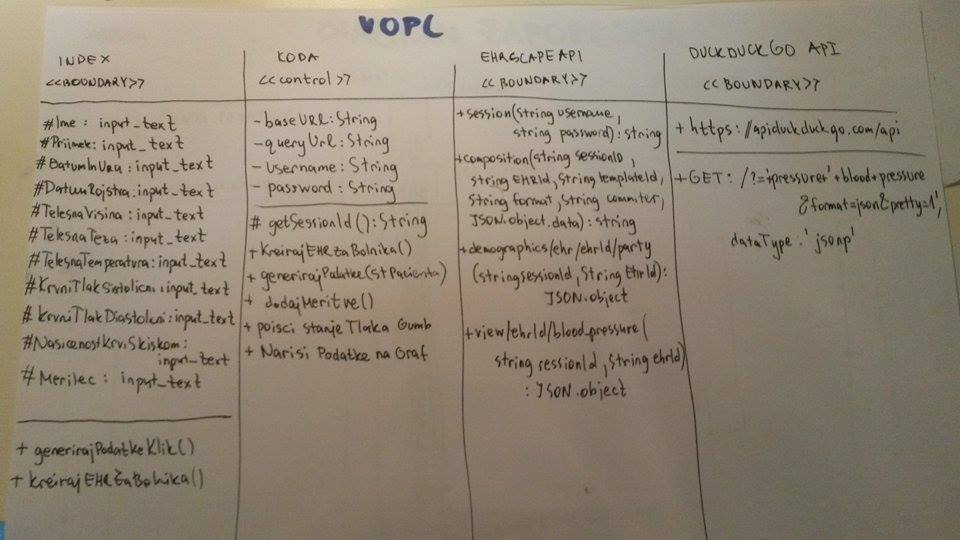 VOPC
INDEX
<<BOUNDARY>>
#Ime : input_text
#Priimek: input_text
#DatumInUra : input_text
#DatumRojstva : input_text
#TelesnaVisina : input_text
#TelesnaTeza : input_text
#TelesnaTemperatura : input_text
#KrvniTlakSistolicni : input_text
#KrvniTlakDiastolicni : input_text
#NasicenostKrviSkisikom :
input_text
#Merilec : input_text
+ generirajPodatkeKlik()
+ kreirajEHRZaBolnika()
KODA
<<control>>
- baseURL : String
- queryUrl : String
- username : String
- password : String
# getSessionId () : String
+ kreirajEHRZaBolnika()
+ generirajPodatke(stPacienta)
+ dodajMeritve()
+ poisci stanje Tlaka Gumb
+ Narisi Podatke na Graf
EHRSCAPE API
<<BOUNDARY>>
+session(String username,
string password) : string
+composition(string sessionId ,
string EHRId, String templateId,
String format, String commiter,
JSON.object.data) : string
+demographics/ehr/ehrId/party
(string sessionId, String EhrId) :
JSON.object
+view/ehrId/blood_pressure(
string sessionId, String ehrId)
: JSON.object
DUCKDUCKGO API
<<BOUNDARY>>
+ https://apiduckduckgo.com/api
+GET: /?=+pressure+'+blood+pressure
&format=json&pretty=1',
dataType : 'jsonp'